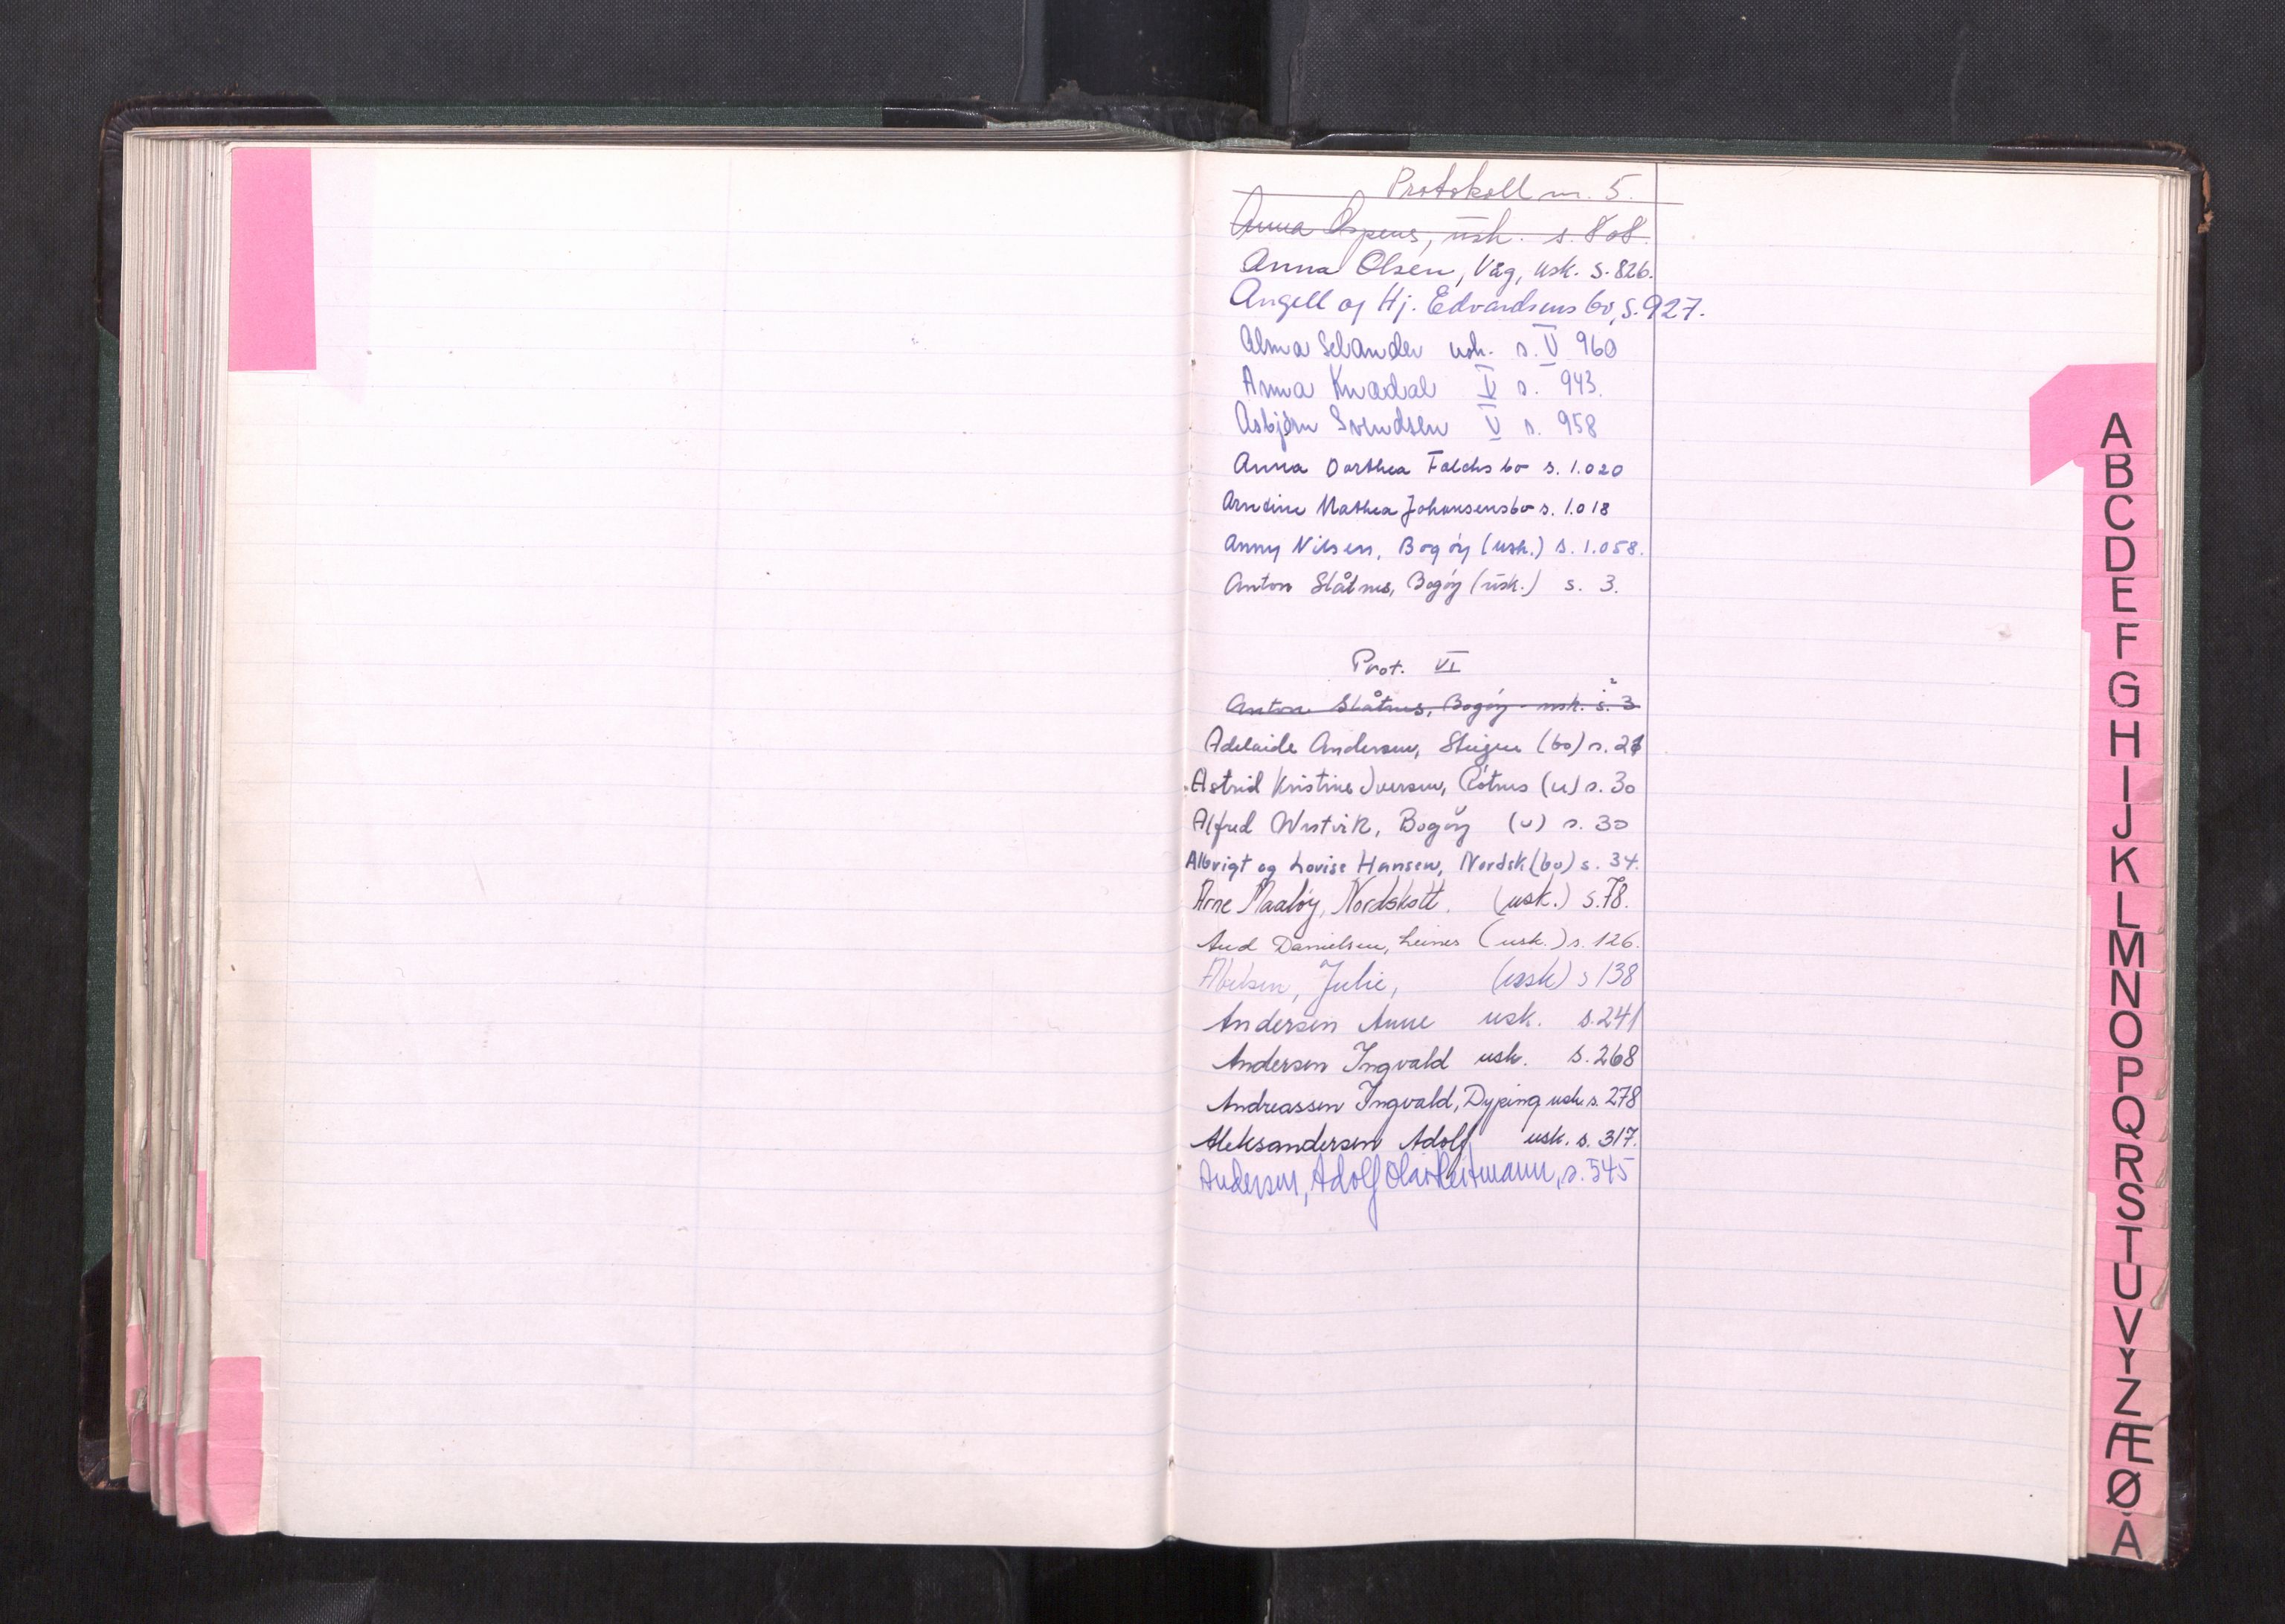 Protokoll nr. 5.
Anna Aspenes, usk. s. 808.
Anna Olsen, Våg, usk. s. 826.
Angell og Hj. Edvardsens bo, s. 927.
Alma Selander usk. s. V 960
Anna Knædal V s. 943.
Asbjørn Svendsen V s. 958
Anna Dorthea Falchs bo s. 1.020
Arndine Mathea Johansens bo s. 1.018
Anny Nilsen, Bogøy (usk.) s. 1.058.
Anton Slåtnes, Bogøy (usk.) s. 3.
Prot. VI
Anton Slåtnes, Bogøy - usk. s. 3
Adelaide Andersen, Steigen (bo) s. 21
Astrid Kristine Iversen, Rótnes (u) s. 30
Alfred Westvik, Bogøy (u) s. 30
Albrigt og Lovise Hansen, Nordsk (bo) s. 34.
Arne Maaløy, Nordskott. (usk.) s. 78.
Aud Danielsen, Leines (usk.) s. 126.
Abelsen, Julie, (ussk) s 138
Andersen Anne usk. s. 241
Andersen Ingvald usk. s. 268
Andreassen Ingvald, Dyping usk. s. 278
Aleksandersen Adolf usk. s. 317.
Andersen, Adolf Olav Hertmann, s. 545
A
B
C
D
E
F
G
H
I
J
K
L
M
N
O
P
Q
R
S
T
U
V
Y
Z
Æ
Ø
Å